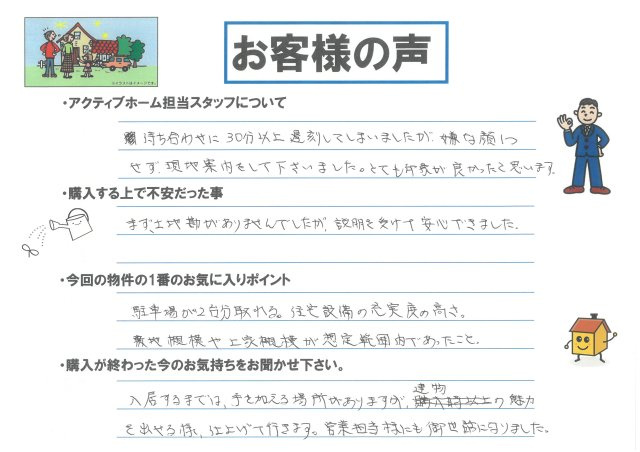 お客様の声
※イラストはイメージです。
・アクティブホーム担当スタッフについて
待ち合わせに30分以上遅刻してしまいましたが、嫌な顔1つ
せず、現地案内をして下さいました。とても印象が良かったと思います。
・購入する上で不安だった事
まず、土地勘がありませんでしたが、説明を受けて安心できました。
・今回の物件の1番のお気に入りポイント
駐車場が2台分取れる。住宅設備の充実度の高さ。
敷地規模や上物規模が想定範囲内であったこと。
・購入が終わった今のお気持ちをお聞かせ下さい。
入居するまでは、手を加える場所がありますが、建物の魅力
を出せる様、仕上げて行きます。営業担当様にも御世話になりました。